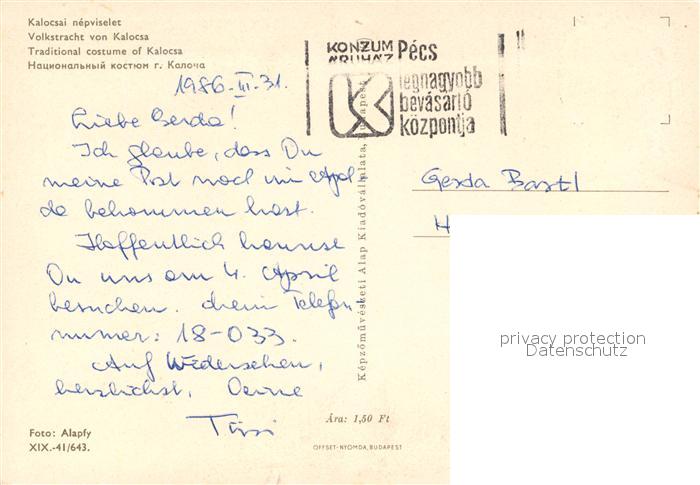 Kalocsai népviselet
Volkstracht von Kalocsa
Traditional costume of Kalocsa
Национальный костюм г. Калоча
1986. III. 31.
Liebe Gerda!
Ich glaube, dass Du
meine Post noch im
da bekommen hast.
Hoffentlich kannst
Du uns am 4. April
besuchen. Telefon-
nummer: 18-033.
Auf Wiedersehen,
herzlichst, Deine
Foto: Alapfy
XIX.-41/643.
Képzőművészeti Alap Kiadóvállalata, Budapest
Ára: 1,50 Ft
OFFSET-NYOMDA, BUDAPEST
KONZUM Pécs
ÁRUHÁZ
legnagyobb
bevásárló
központja
Gerda Bartl
H
privacy protection
Datenschutz